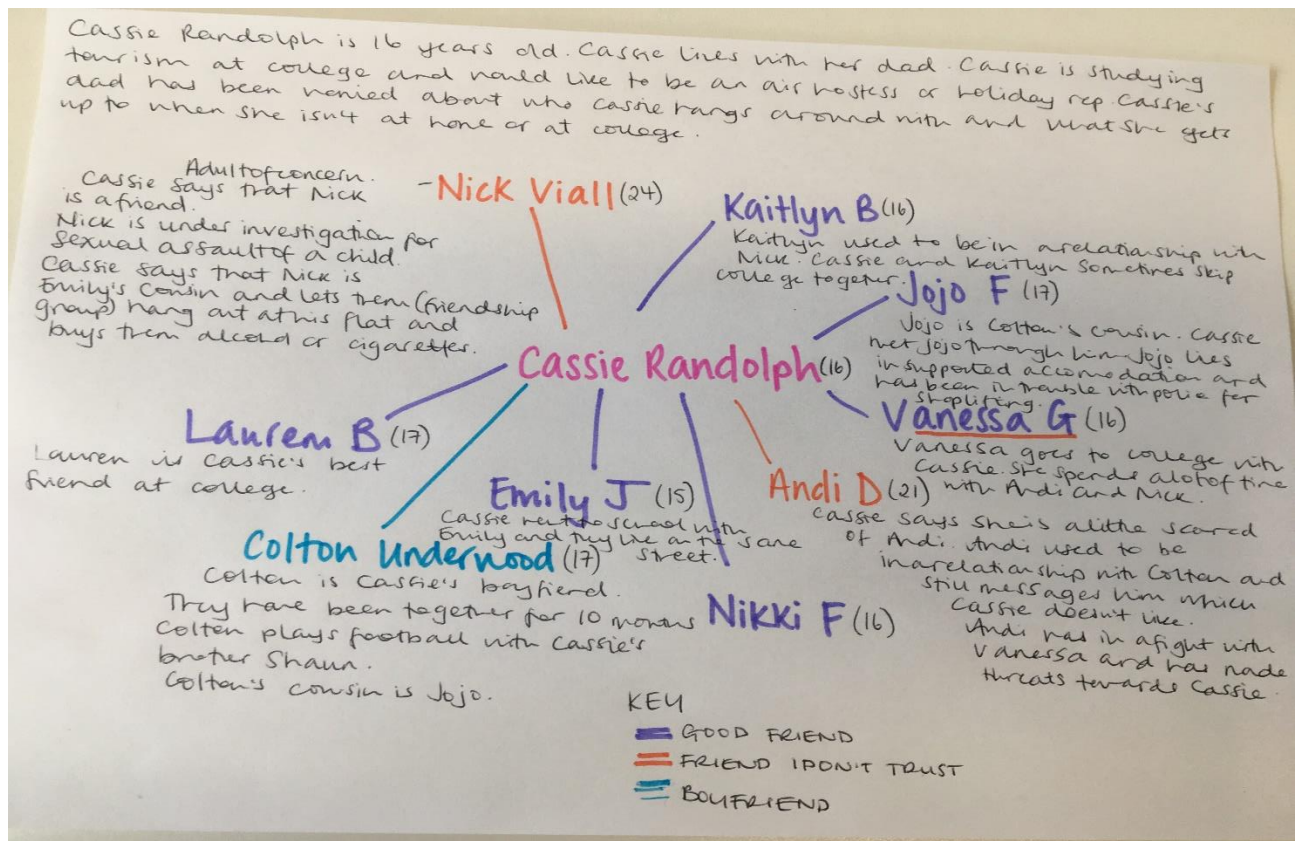 Cassie Randolph is 16 years old. Cassie lives with her dad. Cassie is studying
tourism at college and would like to be an air hostess or holiday rep. Cassie's
dad has been worried about who Cassie hangs around with and what she gets
up to when she isn't at home or at college.
Adult of concern.
Cassie says that Nick
is a friend.
Nick is under investigation for
sexual assault of a child.
Cassie says that Nick is
Emily's cousin and lets them (friendship
group) hang out at his flat and
buys them alcohol or cigarettes.
- Nick Viall (24)
Kaitlyn B (16)
Kaitlyn used to be in a relationship with
Nick. Cassie and Kaitlyn sometimes skip
college together.
Jojo F (17)
Jojo is Colton's cousin. Cassie
met Jojo through him. Jojo lives
in supported accomodation and
has been in trouble with police for
shoplifting.
Cassie Randolph (16)
Vanessa G (16)
Vanessa goes to college with
Cassie. She spends a lot of time
with Andi and Nick.
Lauren B (17)
Lauren is Cassie's best
friend at college.
Emily J (15)
Cassie went to school with
Emily and they live on the same
street.
Andi D (21)
Cassie says she is a little scared
of Andi. Andi used to be
in a relationship with Colton and
still messages him which
Cassie doesn't like.
Andi was in a fight with
Vanessa and has made
threats towards Cassie.
Colton Underwood (17)
Colton is Cassie's boyfierd.
They have been together for 10 months
Colten plays football with Cassie's
brother Shaun.
Colton's cousin is Jojo.
Nikki F (16)
KEY
GOOD FRIEND
FRIEND I DON'T TRUST
BOYFRIEND